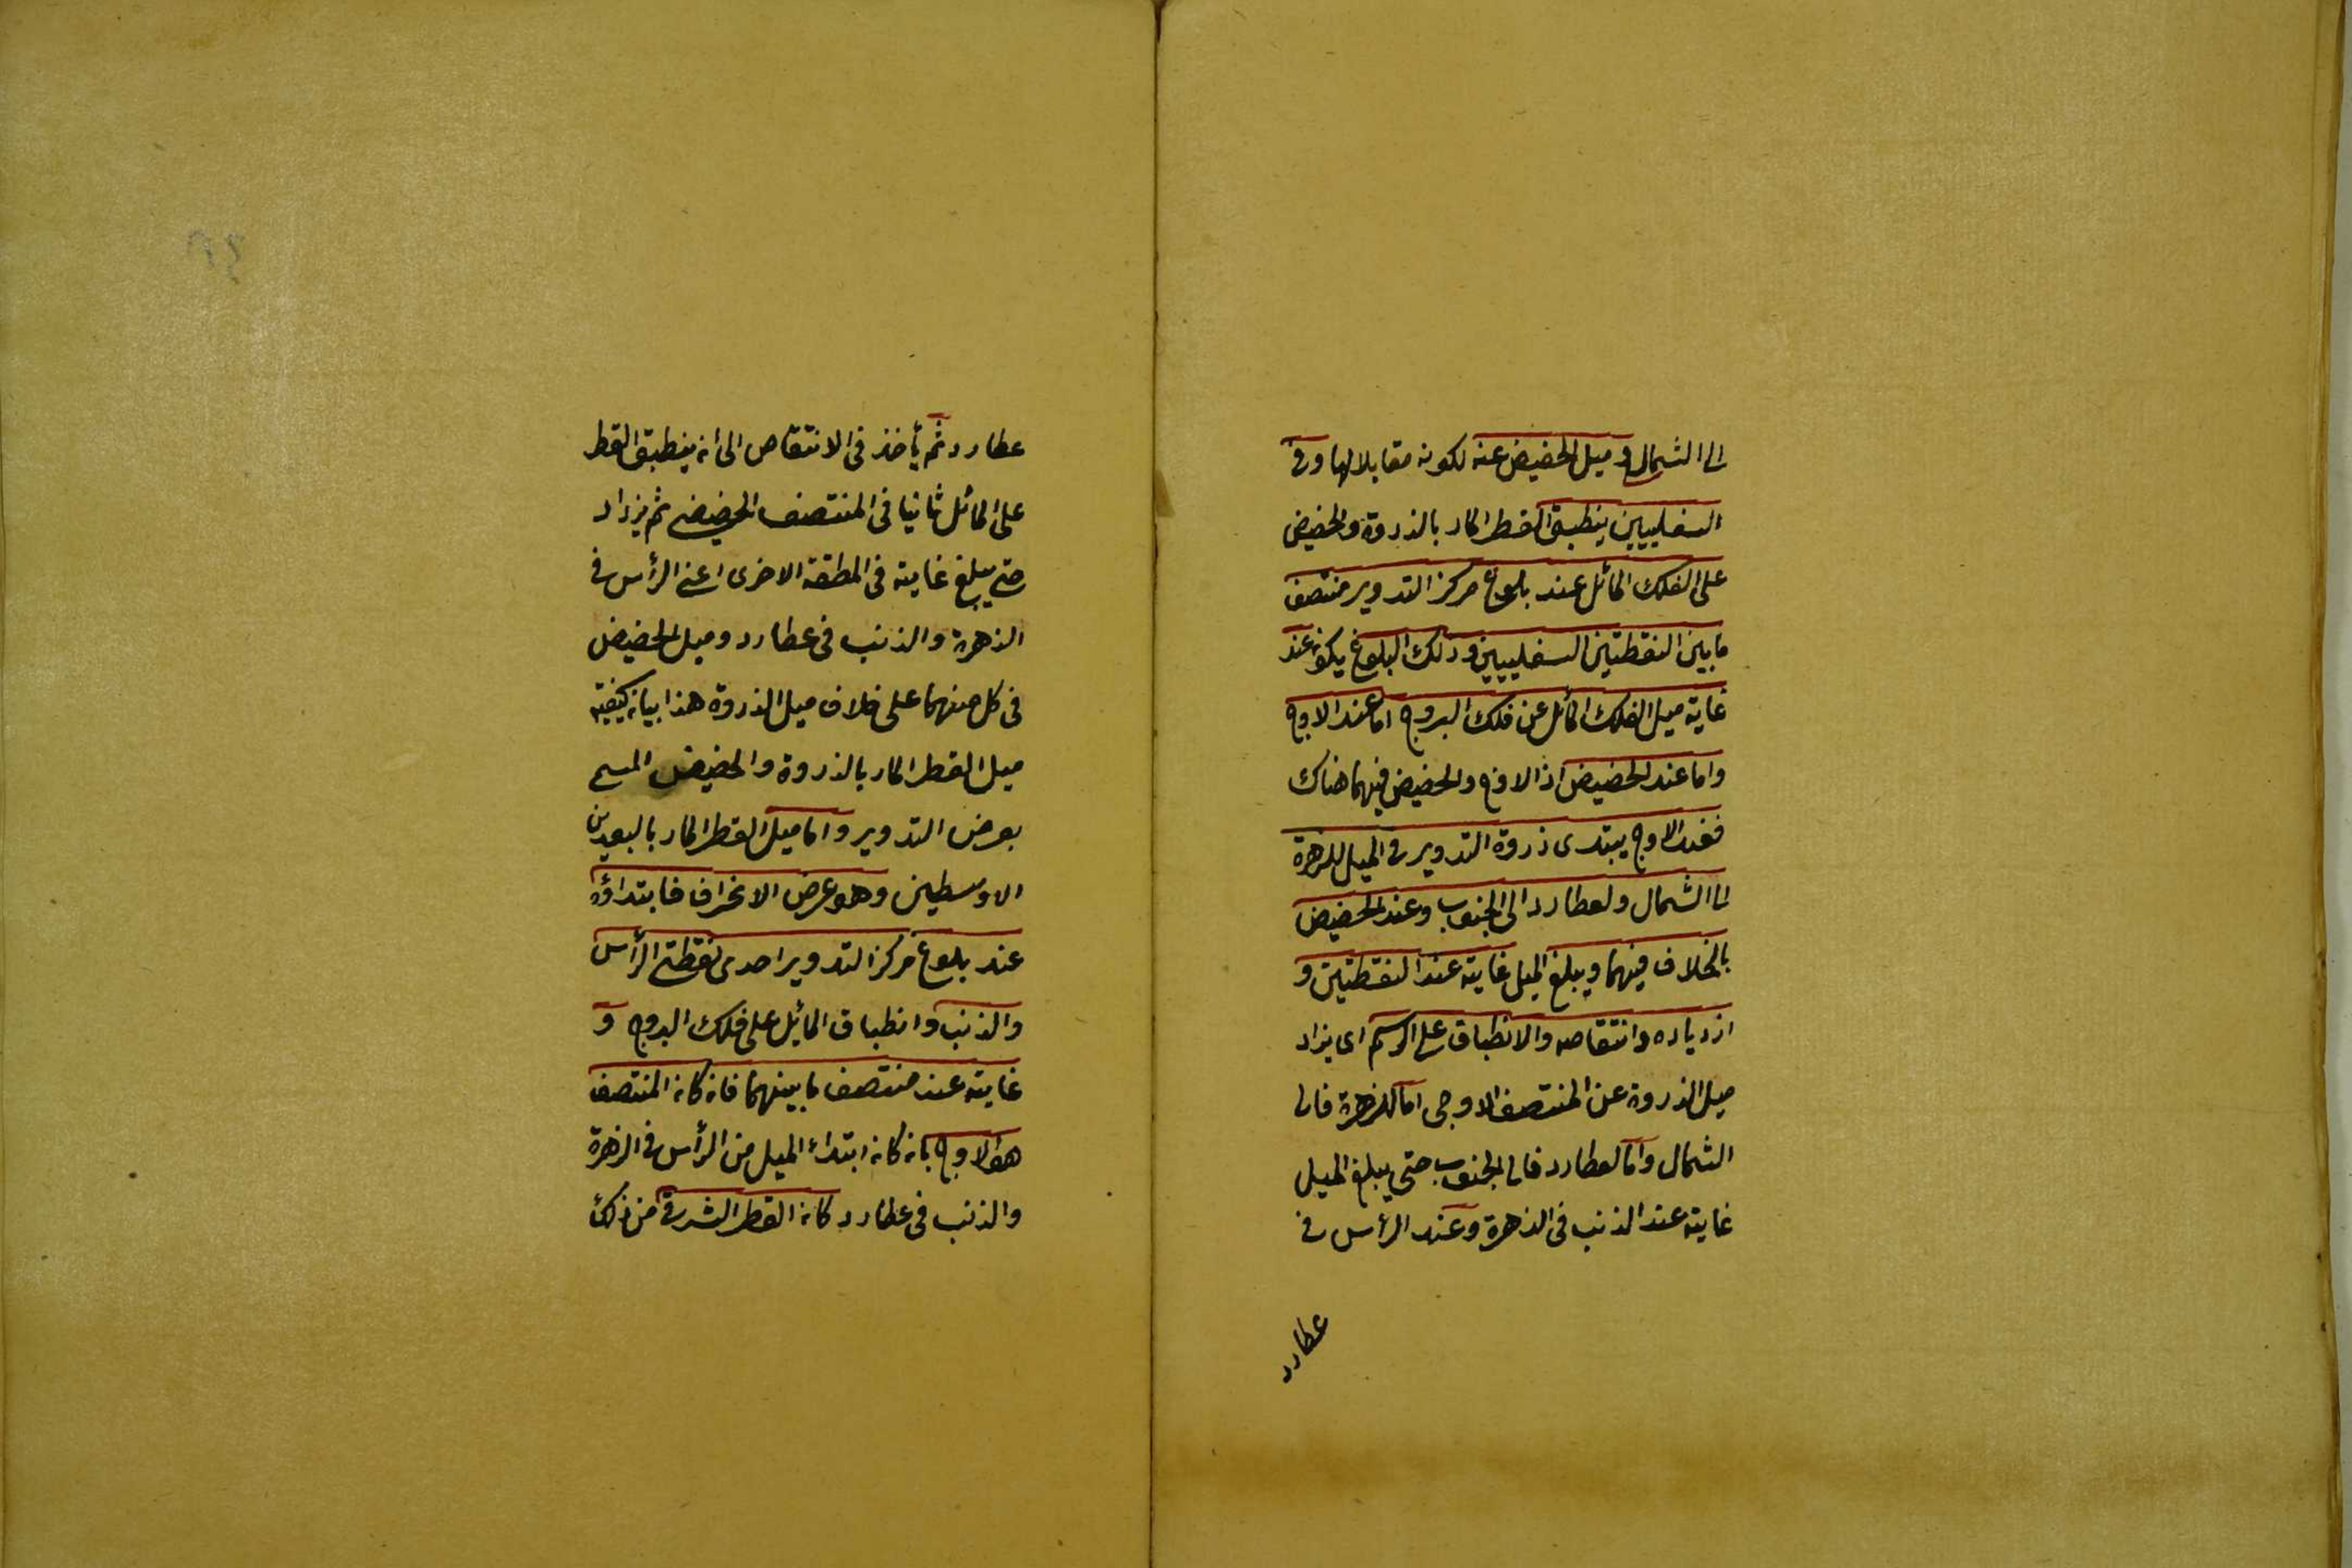 الى الشمال وميل الحضيض عنه لكونه مقابلا لها وفى
السفليين ينطبق القطر المار بالذروة والحضيض
على الفلك المائل عند بلوغ مركز التدوير منتصف
ما بين النقطتين السفليين وذلك البلوغ يكون عند
غاية ميل الفلك المائل عن فلك البروج اما عند الاوج
واما عند الحضيض اذ الاوج والحضيض فيهما هناك
فعند الاوج يبتدى ذروة التدوير فى الميل للزهرة
الى الشمال ولعطارد الى الجنوب وعند الحضيض
بالخلاف فيهما ويبلغ الميل غايته عند النقطتين و
ازدياده وانتقاصه والانطباق على الرسم اى يزاد
ميل الذروة عن المنتصف الاوجى اما للزهرة فالى
الشمال واما لعطارد فالى الجنوب حتى يبلغ الميل
غايته عند الذنب فى الزهرة وعند الرأس فى
عطارد
عطارد ثم يأخذ فى الانتقاص الى ان ينطبق القطر
على المائل ثانيا فى المنتصف الحضيضى ثم يزداد
حتى يبلغ غايته فى النقطة الاخرى اعنى الرأس فى
الزهرة والذنب فى عطارد وميل الحضيض
فى كل منهما على خلاف ميل الذروة هذا بيان كيفية
ميل القطر المار بالذروة والحضيض المسمى
بعرض التدوير واما ميل القطر المار بالبعدين
الاوسطين وهو عرض الانحراف فابتداؤه
عند بلوغ مركز التدوير احدى نقطتى الرأس
والذنب وانطباق المائل على فلك البروج و
غايته عند منتصف ما بينهما فان كان المنتصف
هو الاوج بان كان ابتداء الميل من الرأس فى الزهرة
والذنب فى عطارد كان القطر الشرقى من ذلك